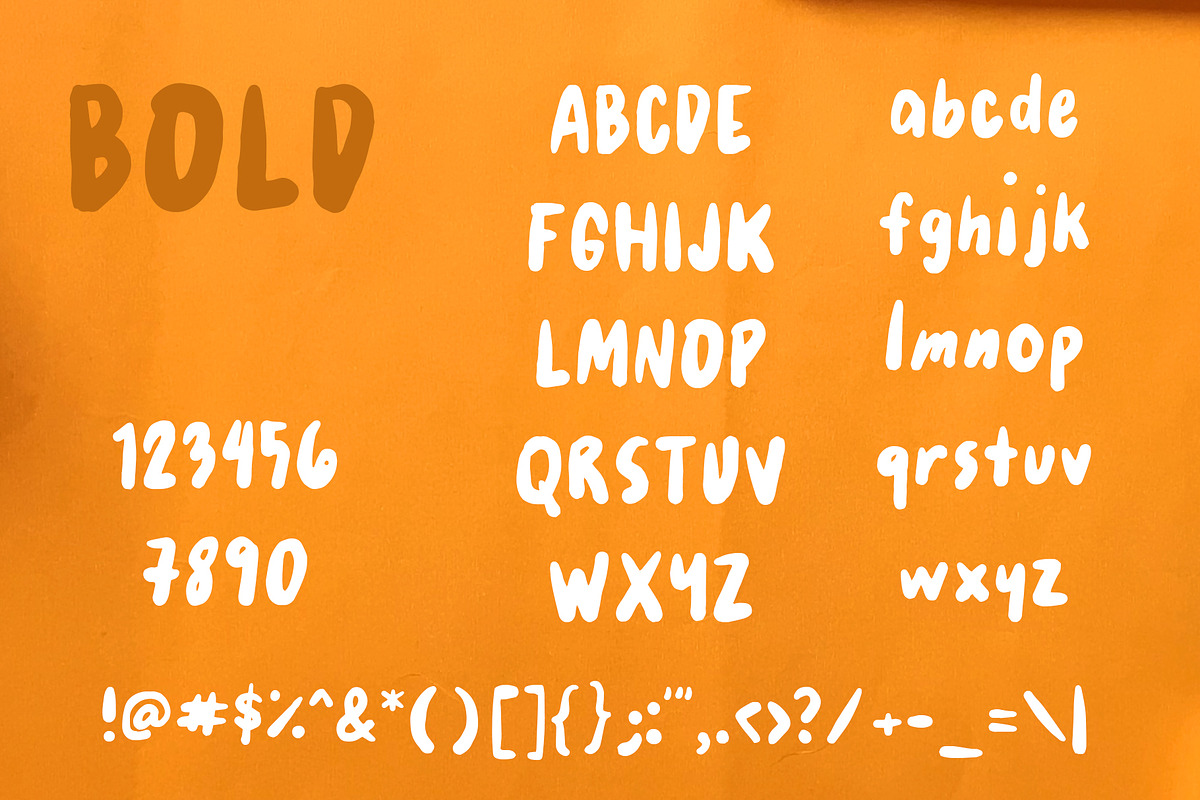 BOLD
123456
7890
ABCDE
FGHIJK
LMNOP
QRSTUV
WXYZ
abcde
fghijk
lmnop
qrstuv
wxyz
!@#$%^&*()[]{};:'",.<>?/+-_=\|